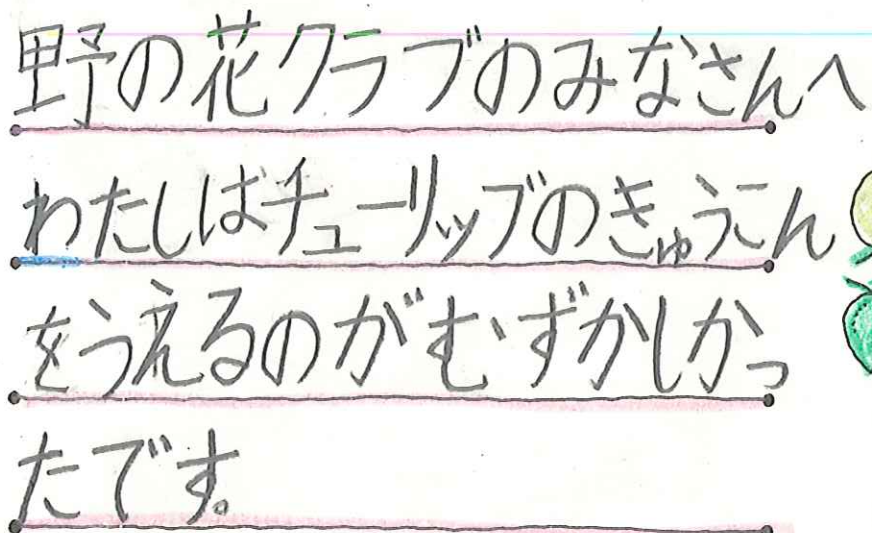 野の花クラブのみなさんへ
わたしはチューリップのきゅうこん
をうえるのがむずかしかっ
たです。